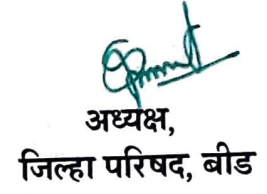 अध्यक्ष,
जिल्हा परिषद, बीड